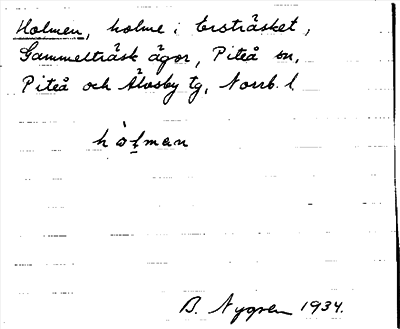 Holmen, holme i Ersträsket,
Gammelträsk ägor, Piteå sn,
Piteå och Älvsby tg, Norrb. l.
hòlman
B. Nygren 1934.